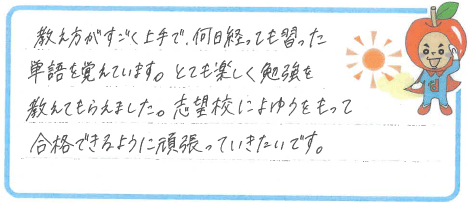 教え方がすごく上手で、何日経っても習った
単語を覚えています。とても楽しく勉強を
教えてもらえました。志望校によゆうをもって
合格できるように頑張っていきたいです。